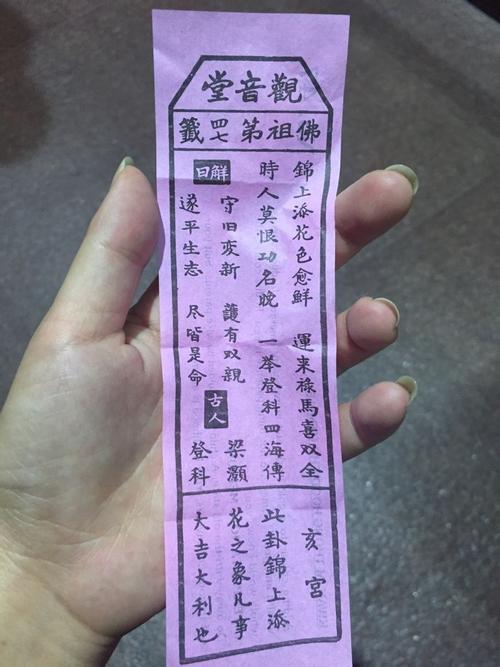 觀音堂
佛祖第四七籤
錦上添花色愈鮮 運来祿馬喜双全
時人莫恨功名晚 一举登科四海傳
解曰
守旧変新 護有双親
遂平生志 尽皆是命
古人
梁灝
登科
亥宮
此卦錦上添
花之象凡事
大吉大利也